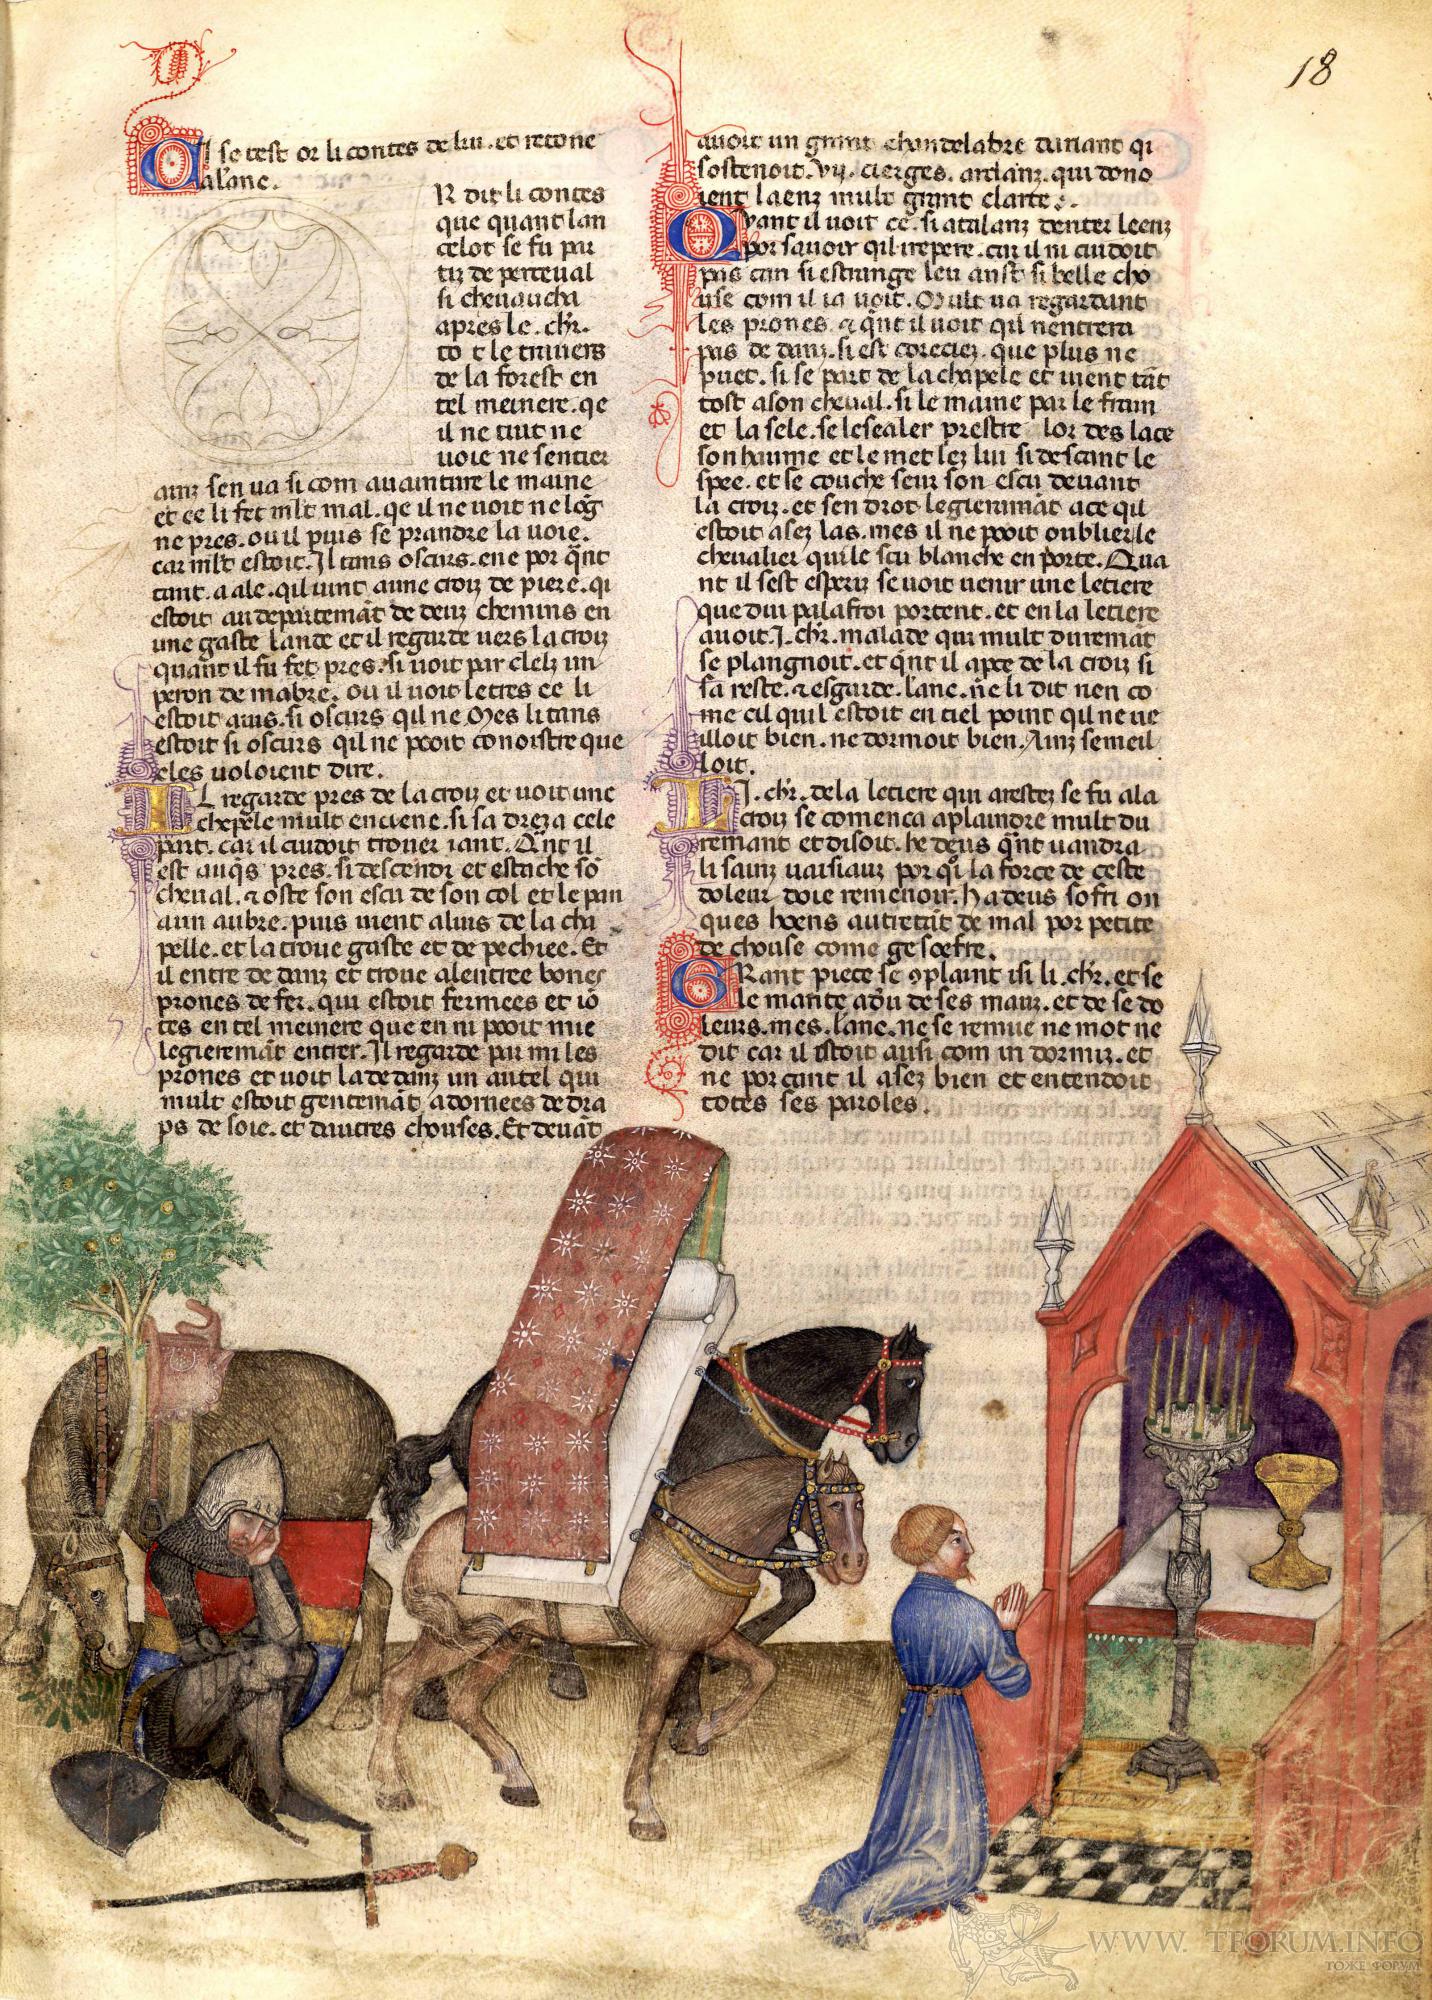 18
Ci se test or li contes de lui. et retorne
a lanc.
R dit li contes
que quant lan
celot se fu par
tiz de perceual
si cheuaucha
apres le. chr.
to t le trauers
de la forest en
tel meinere. qe
il ne tiut ne
uoie ne sentier
ainz sen ua si com auainture le maine
et ce li fet mlt mal. qe il ne uoit ne log
ne pres. ou il puis se prandre la uoie.
car mlt estoit. Il tans oscurs. ene por qnt
tant. a ale. qil uint a une croiz de piere. qi
estoit au departemat de deuz chemins en
une gaste lande et il regarde uers la croiz
quant il fu fet pres. si uoit par delez un
peron de mabre. ou il uoit letres ce li
estoit auis. si oscurs qil ne Mes li tans
estoit si oscurs qil ne pooit conoistre que
eles uoloient dire.
IL regarde pres de la croiz et uoit une
chepele mult enciene. si sa dreza cele
part. car il cuidoit trouer iant. Qnt il
est auqs pres. si descendi et estache so
cheual. & oste son escu de son col et le pan
a un aubre. puis uient a luis de la cha
pelle. et la troue gaste et de pechiee. Et
il entre de danz et troue a lentree bones
prones de fer. qui estoit fermees et io
tes en tel meinere que en ni pooit mie
legieremat entrer. Il regarde par mi les
prones et uoit la dedanz un autel qui
mult estoit gentemat adornees de dra
ps de soie. et dautres chouses. Et deuat
auoit un grant chandelabre dariant qi
sostenoit. vij. cierges. ardanz. qui dono
ient laenz mult grant clarte.
Quant il uoit ce. si a talanz denter leenz
por sauoir qil i repere. car il ni cuidoit
pas can si estrange leu aust si belle cho
use com il ia uoit. Mult ua regardant
les prones. & qnt il uoit qil nentrera
pas de danz. si est coreciez. que plus ne
puet. si se part de la chapele et uient tat
tost a son cheual. si le maine par le frain
et la sele. se lesealer prestre lor des lace
son haume et le met lez lui si descaint le
spee. et se couche seur son escu deuant
la croiz. et sen drot legieremat a ce qil
estoit asez las. mes il ne pooit oublier le
cheualier qui le scu blanche en porte. Qua
nt il sest esperiz se uoit uenir une letiere
que dui palafroi portent. et en la letiere
auoit. I. chr. malade qui mult duremat
se plangnoit. et qnt il apce de la croiz si
sa reste. & esgarde. lanc. ne li dit nen co
me cil qui l estoit en tiel point qil ne ue
illoit bien. ne dormoit bien. Ainz semeil
loit.
LI. chr. de la letiere qui arestez se fu a la
croiz se comenca a plaindre mult du
remant et disoit. he deus qnt uandra
li sainz uaisiaux por qi la force de ceste
doleur doie remenoir. ha deus sofri on
ques hoens autretat de mal por petite
de chouse come ge soefre.
GRant piece se 9plaint isi li. chr. et se
le mante a diu de ses maux. et de se do
leurs. mes. lanc. ne se remue ne mot ne
dit car il estoit ausi com in dormiz. et
ne por cant il asez bien et entendoit
totes ses paroles.
WWW. TFORUM.INFO
ТОЖЕ ФОРУМ